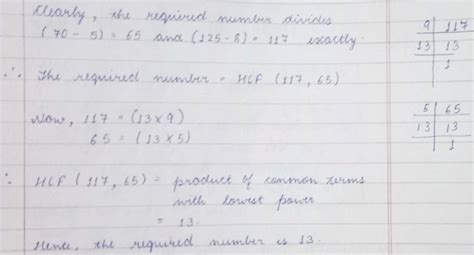 Clearly, the required number divides
(70 - 5) = 65 and (125 - 8) = 117 exactly.
∴ The required number = HCF (117, 65)
Now, 117 = (13 × 9)
65 = (13 × 5)
∴ HCF (117, 65) = product of common terms
with lowest power
= 13.
Hence, the required number is 13.
9 | 117
13 | 13
1
5 | 65
13 | 13
1